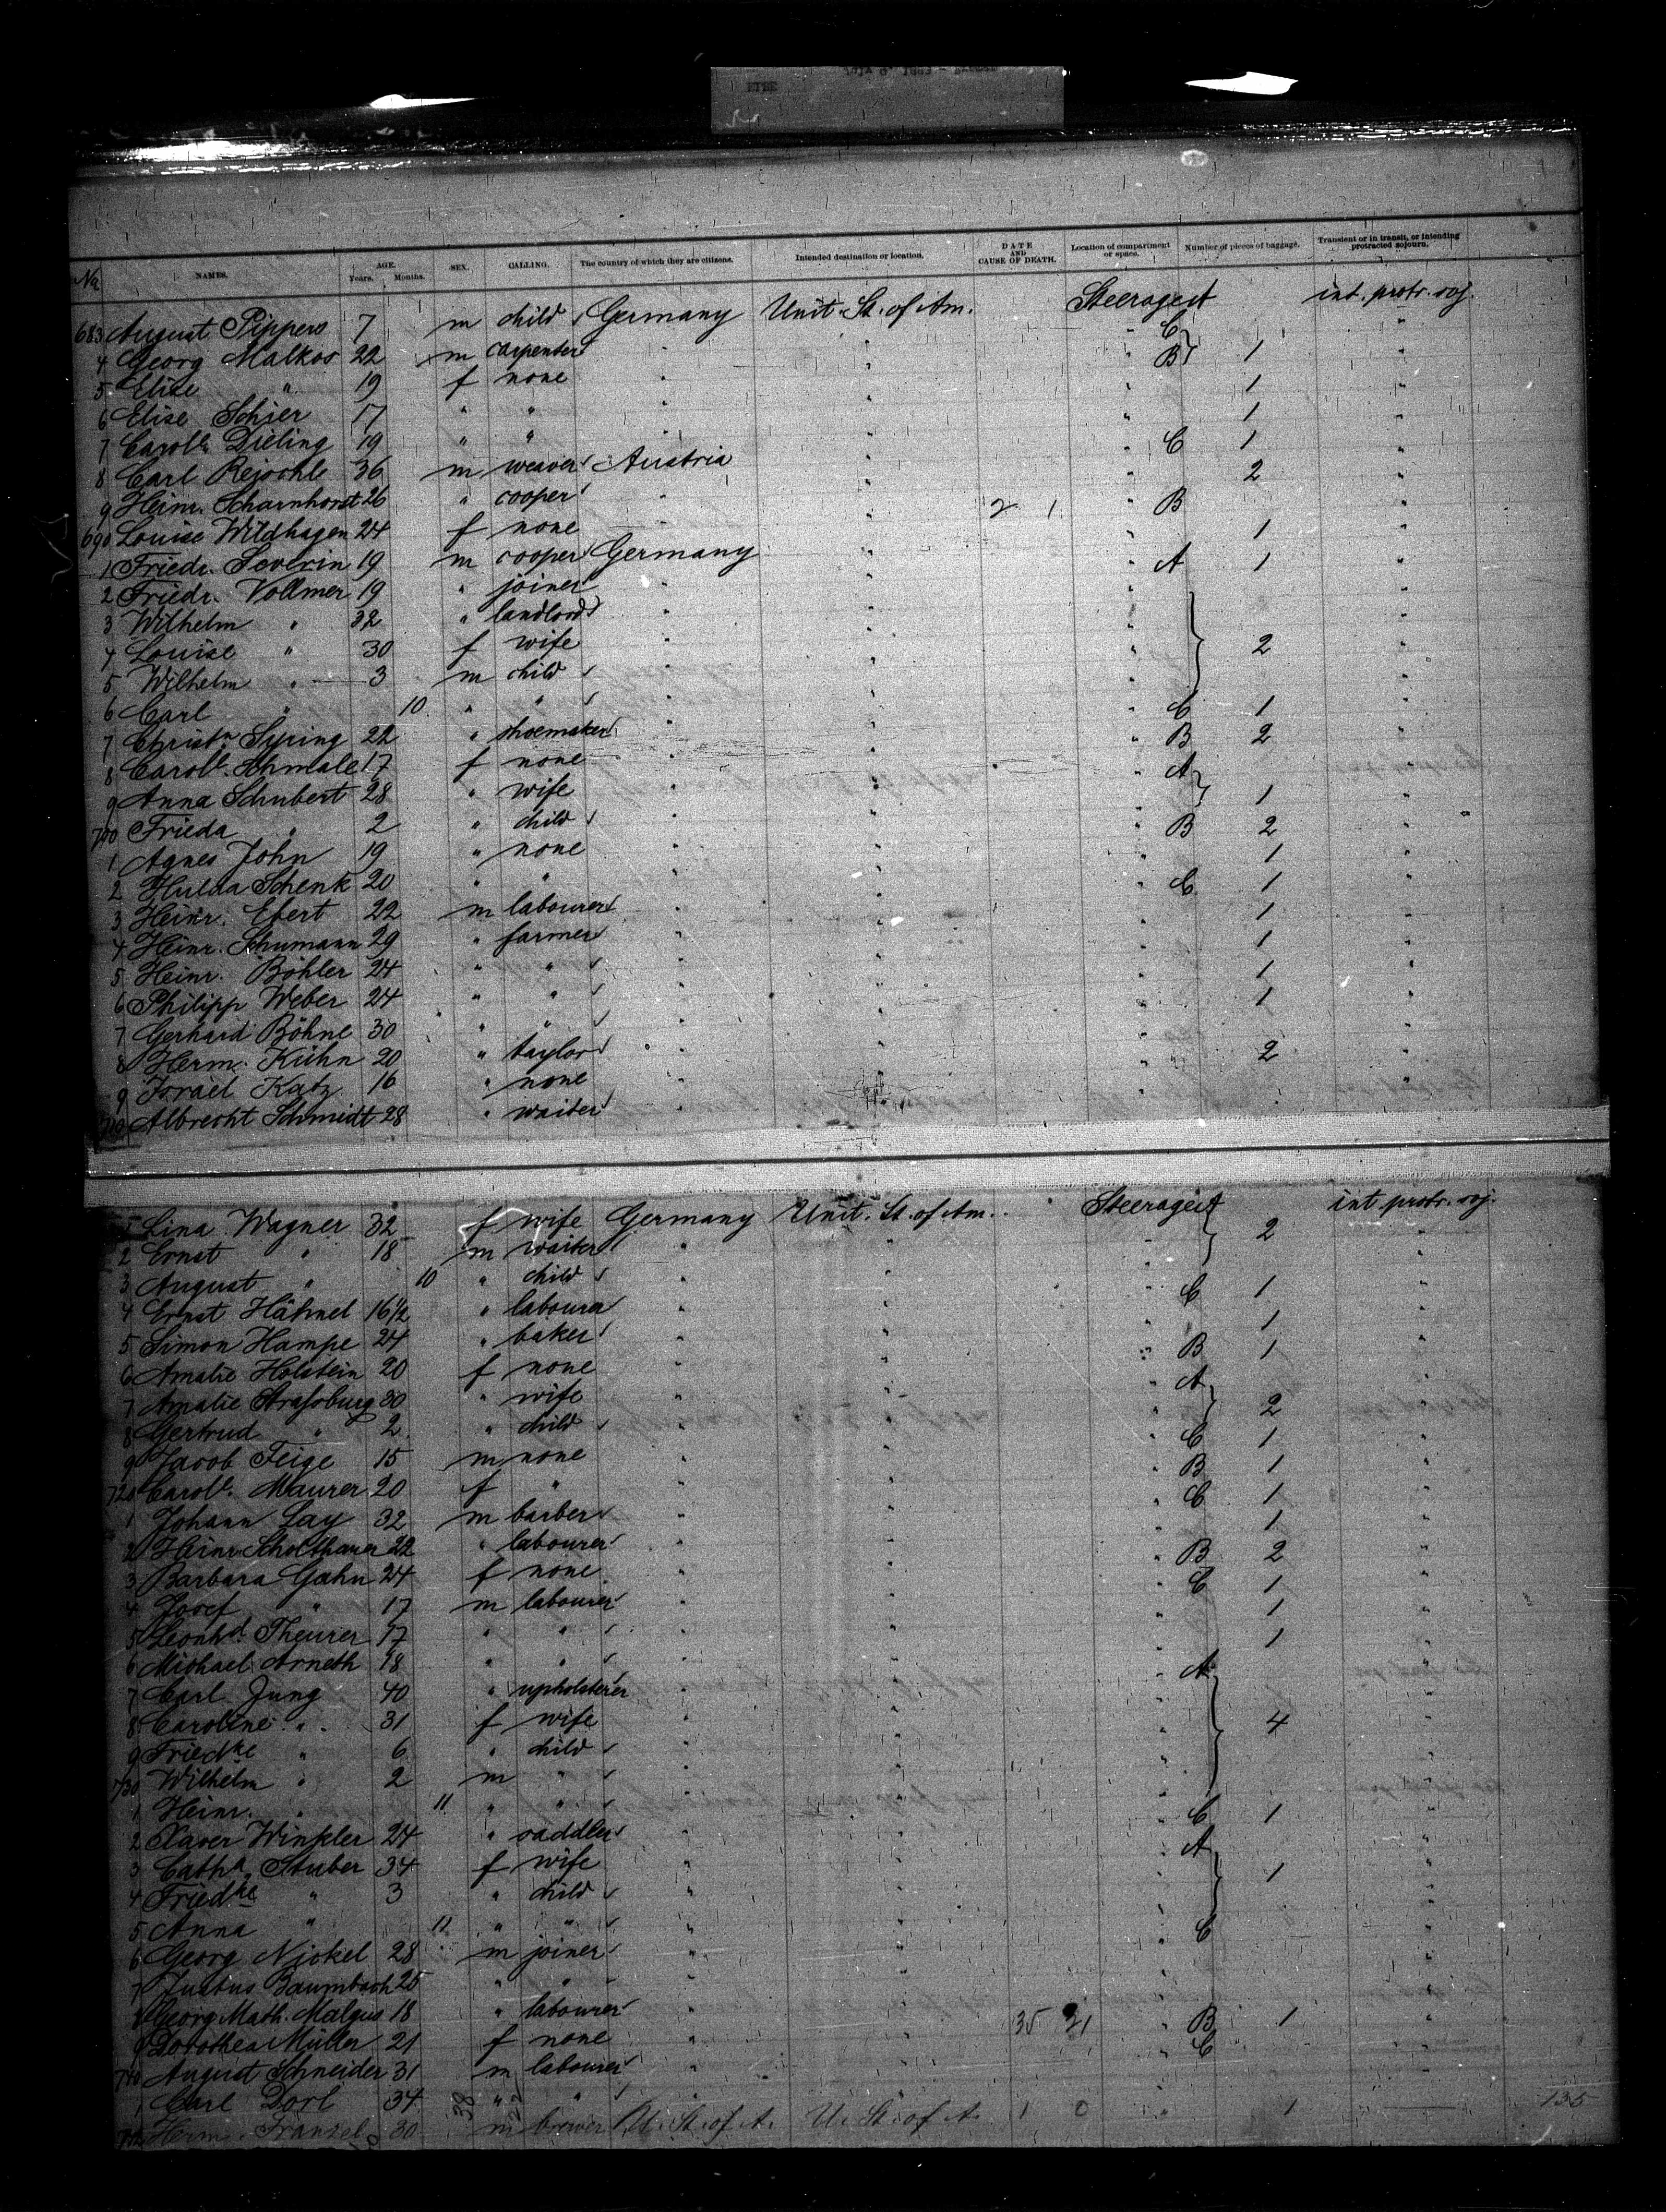 No NAMES. AGE. Years. Months. SEX. CALLING. The country of which they are citizens. Intended destination or location. DATE AND CAUSE OF DEATH. Location of compartment or space. Number of pieces of baggage. Transient or in transit, or intending protracted sojourn.
683 August Pippers 7 m child Germany Unit. St. of Am. Steerage A int. protr. soj.
4 Georg Malkos 22 m carpenter " " " C "
5 Elise " 19 f none " " " B 1 "
6 Elise Schier 17 " " " " " 1 "
7 Carol. Dieling 19 " " " " " 1 "
8 Carl Rejschle 36 m weaver Austria " " C 1 "
9 Heinr. Scharnhorst 26 " cooper " " " 2 "
690 Louise Wildhagen 24 f none " 2 1 " B "
1 Friedr. Severin 19 m cooper Germany " " 1 "
2 Friedr. Vollmer 19 " joiner " " " A 1 "
3 Wilhelm " 32 " landlord " " " "
4 Louise " 30 f wife " " " 2 "
5 Wilhelm " 3 m child " " " "
6 Carl " 10 " " " " " "
7 Christn Syring 22 " shoemaker " " " C 1 "
8 Carol. Schmale 17 f none " " " B 2 "
9 Anna Schubert 28 " wife " " " A 1 "
700 Frieda " 2 " child " " " "
1 Agnes John 19 " none " " " B 2 "
2 Hulda Schenk 20 " " " " " 1 "
3 Heinr. Ebert 22 m labourer " " " C 1 "
4 Heinr. Schumann 29 " farmer " " " 1 "
5 Heinr. Böhler 24 " " " " " 1 "
6 Philipp Weber 24 " " " " " 1 "
7 Gerhard Böhne 30 " " " " " 1 "
8 Herm. Kühn 20 " taylor " " " "
9 Israel Katz 16 " none " " " 2 "
710 Albrecht Schmidt 28 " waiter
1 Lina Wagner 32 f wife Germany Unit. St. of Am. Steerage A 2 int. protr. soj.
2 Ernst " 18 m waiter " " " "
3 August " 10 " child " " " "
4 Ernst Hähnel 16 1/2 " labourer " " " C 1 "
5 Simon Hampe 24 " baker " " " 1 "
6 Amalie Holstein 20 f none " " " B 1 "
7 Amalie Strassburg 30 " wife " " " A 2 "
8 Gertrud " 2 " child " " " "
9 Jacob Feige 15 m none " " " C 1 "
720 Carol. Maurer 20 f " " " " B 1 "
1 Johann Lay 32 m barber " " " C 1 "
2 Heinr. Scholthauer 22 " labourer " " " 1 "
3 Barbara Gahn 24 f none " " " B 2 "
4 Josef " 17 m labourer " " " C 1 "
5 Leonhd. Theurer 17 " " " " " 1 "
6 Michael Arneth 18 " " " " " 1 "
7 Carl Jung 40 " upholsterer " " " A "
8 Caroline " 31 f wife " " " 4 "
9 Friedke " 6 " child " " " "
730 Wilhelm " 2 m " " " " "
1 Heinr. " 11 " " " " " "
2 Xaver Winkler 24 " saddler " " " C 1 "
3 Catha. Stuber 34 f wife " " " A 1 "
4 Friedke " 3 " child " " " "
5 Anna " 11 " " " " " "
6 Georg Nickel 28 m joiner " " " C "
7 Justus Baumbach 25 " " " " " "
8 Georg Math. Malgus 18 " labourer " " " "
9 Dorothea Müller 21 f none " " 35 31 " B 1 "
740 August Schneider 31 m labourer " " " C "
1 Carl Dorl 34 38 " " " " " "
742 Herm. Franzel 30 m brewer U. St. of A. U. St. of A. 1 0 " 1 135